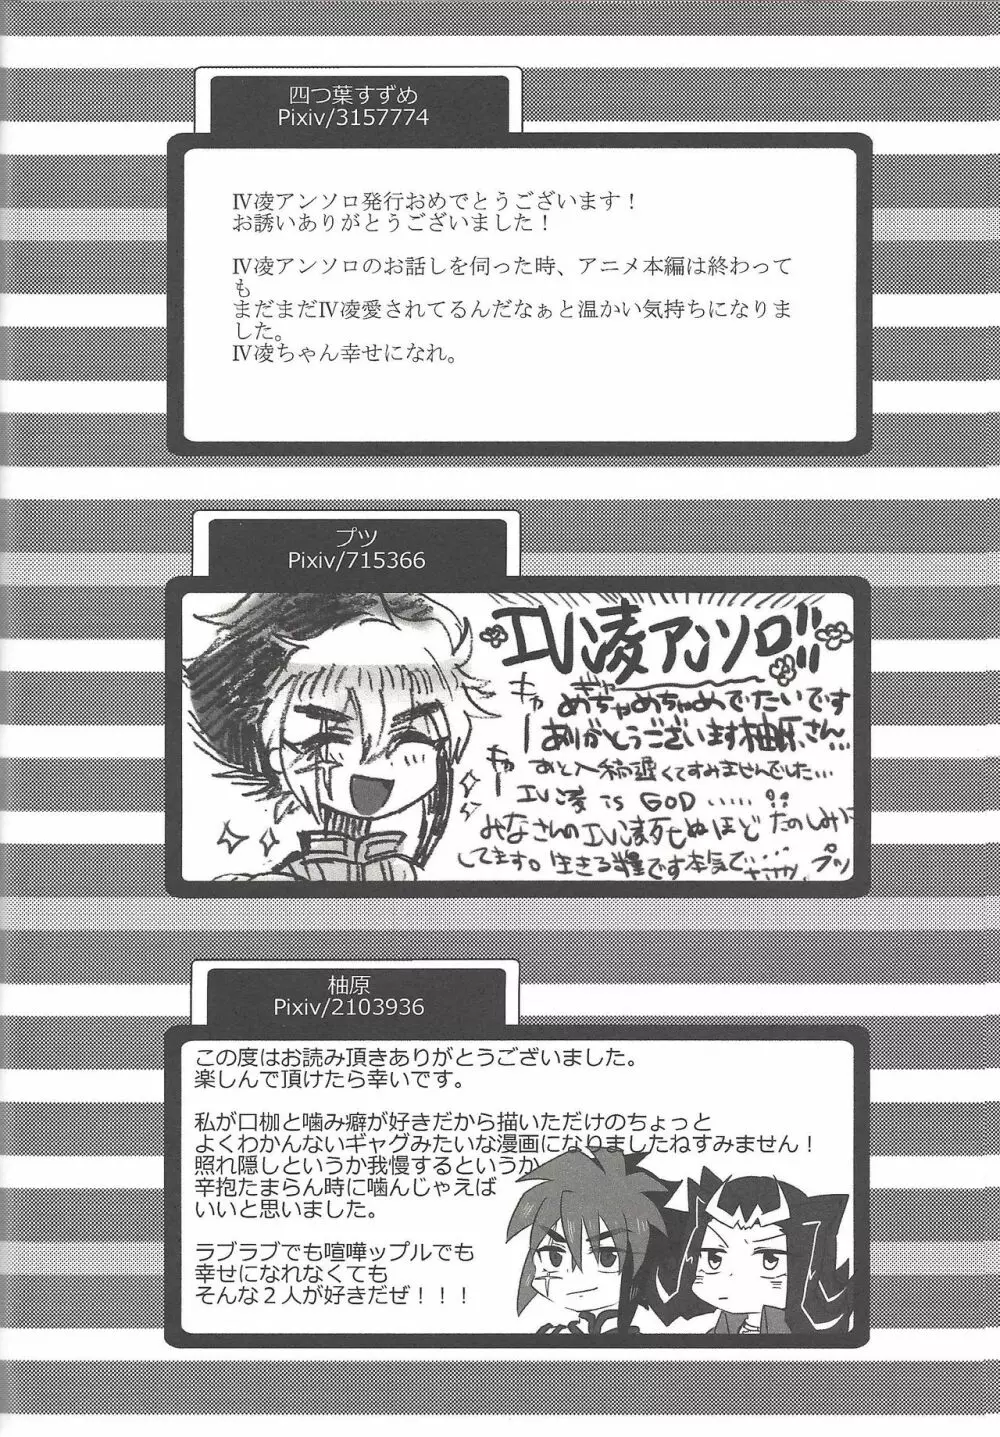 四つ葉すずめ
Pixiv/3157774
Ⅳ凌アンソロ発行おめでとうございます！
お誘いありがとうございました！
Ⅳ凌アンソロのお話しを伺った時、アニメ本編は終わって
も
まだまだⅣ凌愛されてるんだなぁと温かい気持ちになりま
した。
Ⅳ凌ちゃん幸せになれ。
プツ
Pixiv/715366
Ⅳ凌アンソロ!!
ギャー
めちゃめちゃめでたいです
ありがとうございます柚原さん…
あと入稿遅くてすみませんでした…
Ⅳ凌 is GOD……!!
みなさんのⅣ凌死ぬほどたのしみに
してます。生きる糧です本気で…
プツ
柚原
Pixiv/2103936
この度はお読み頂きありがとうございました。
楽しんで頂けたら幸いです。
私が口枷と噛み癖が好きだから描いただけのちょっと
よくわかんないギャグみたいな漫画になりましたねすみません！
照れ隠しというか我慢するというか
辛抱たまらん時に噛んじゃえば
いいと思いました。
ラブラブでも喧嘩ップルでも
幸せになれなくても
そんな２人が好きだぜ！！！